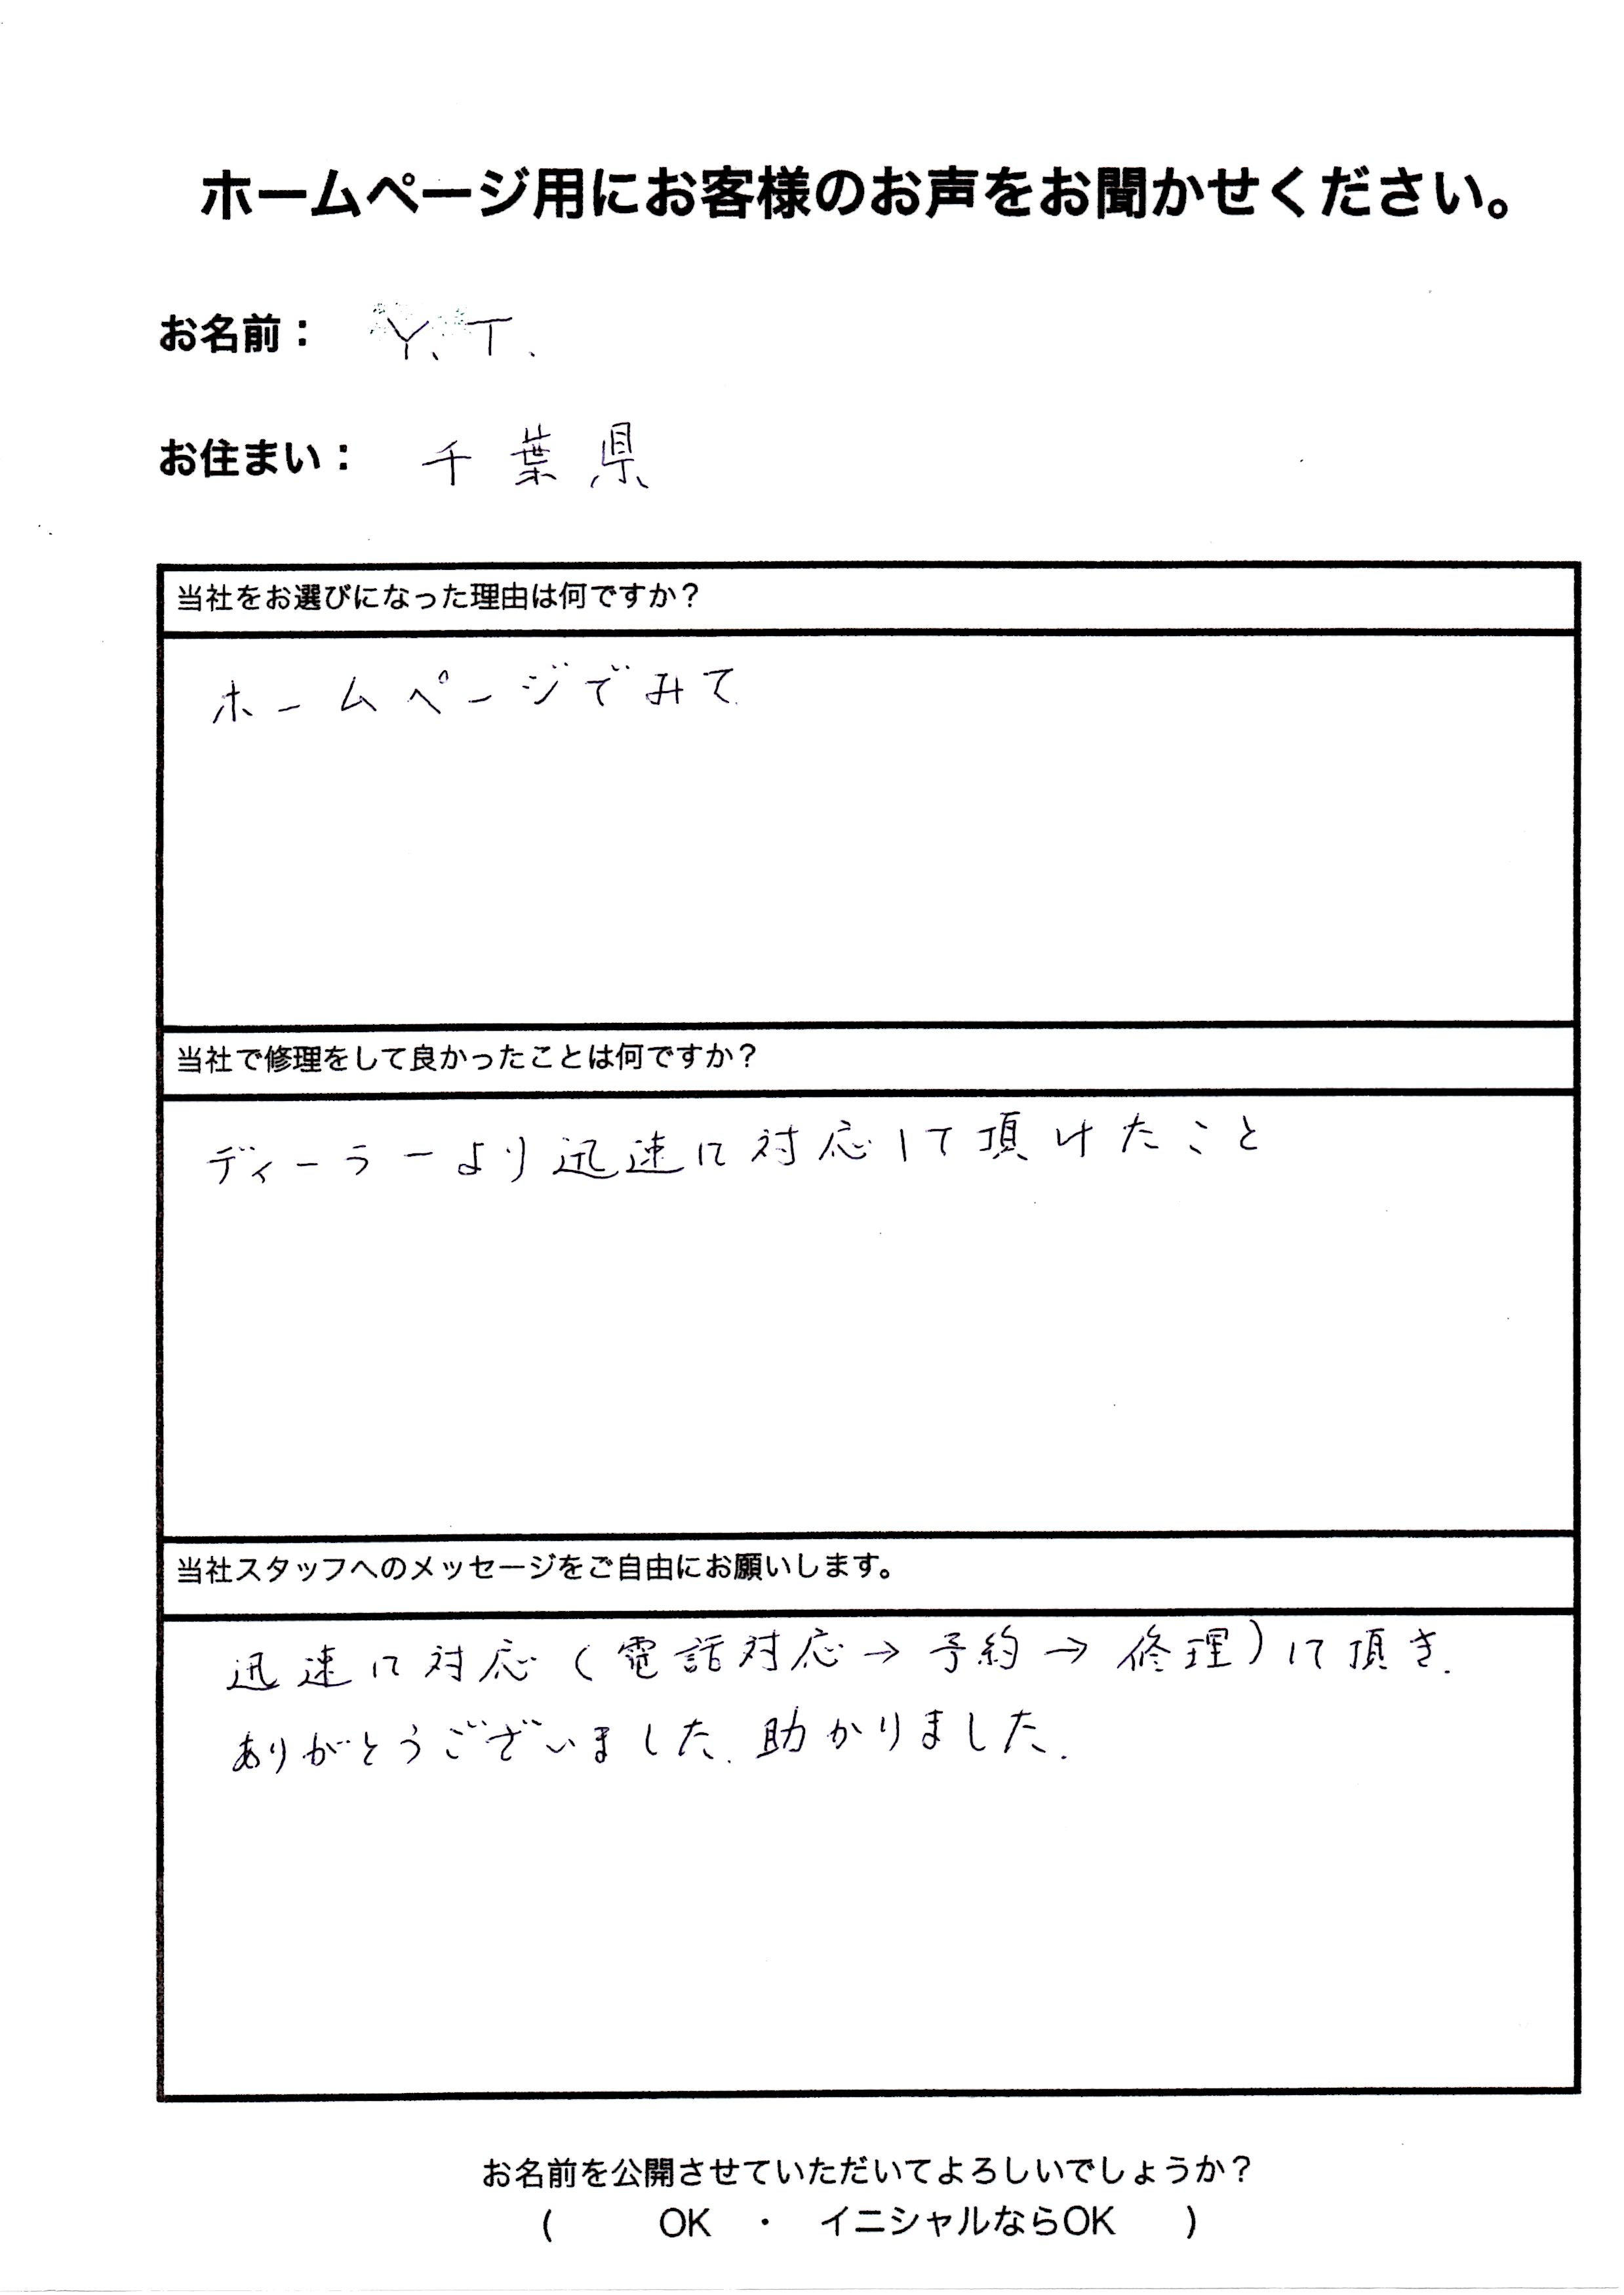 ホームページ用にお客様のお声をお聞かせください。
お名前： Y.T.
お住まい： 千葉県
当社をお選びになった理由は何ですか？
ホームページでみて
当社で修理をして良かったことは何ですか？
ディーラーより迅速に対応して頂けたこと
当社スタッフへのメッセージをご自由にお願いします。
迅速に対応（電話対応→予約→修理）して頂き、
ありがとうございました。助かりました。
お名前を公開させていただいてよろしいでしょうか？
(　OK　・　イニシャルならOK　)